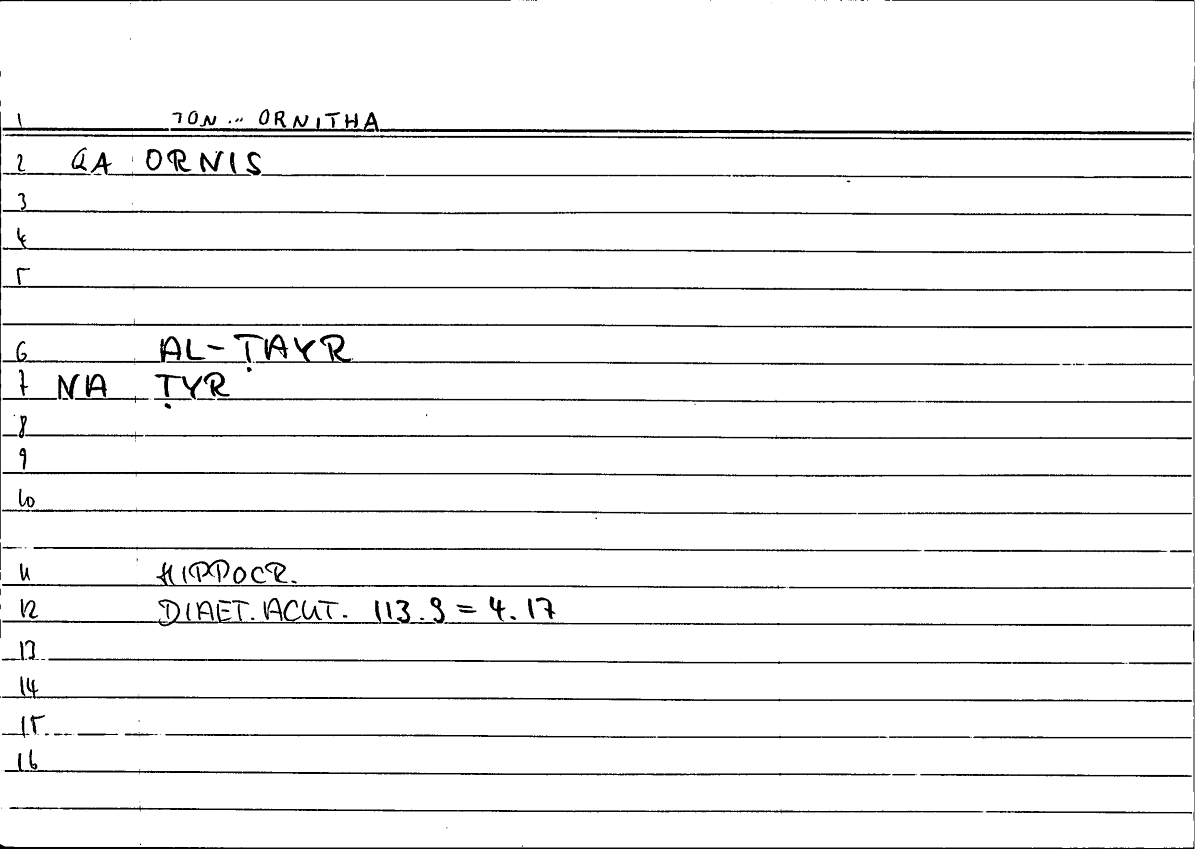 1 TON ... ORNITHA
2 QA ORNIS
3
4
5
6 AL-ṬAYR
7 NA ṬYR
8
9
10
11 HIPPOCR.
12 DIAET.ACUT. 113.9 = 4.17
13
14
15
16